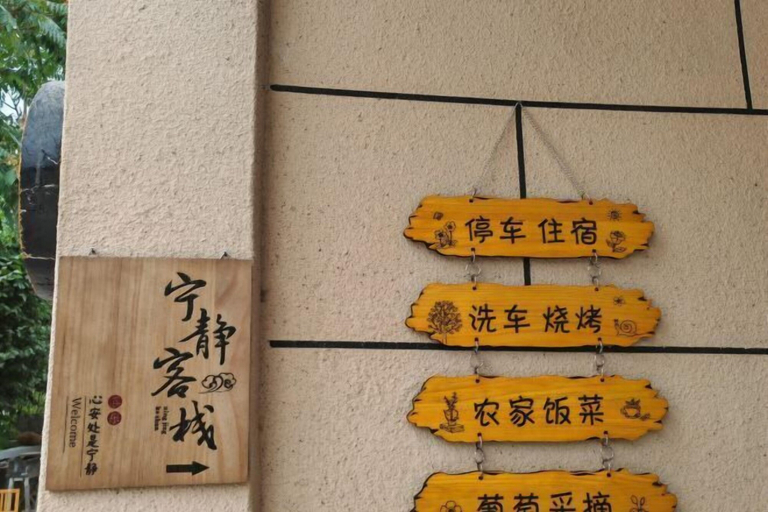 宁静客栈
心安处是宁静
Welcome
停车 住宿
洗车 烧烤
农家饭菜
葡萄采摘